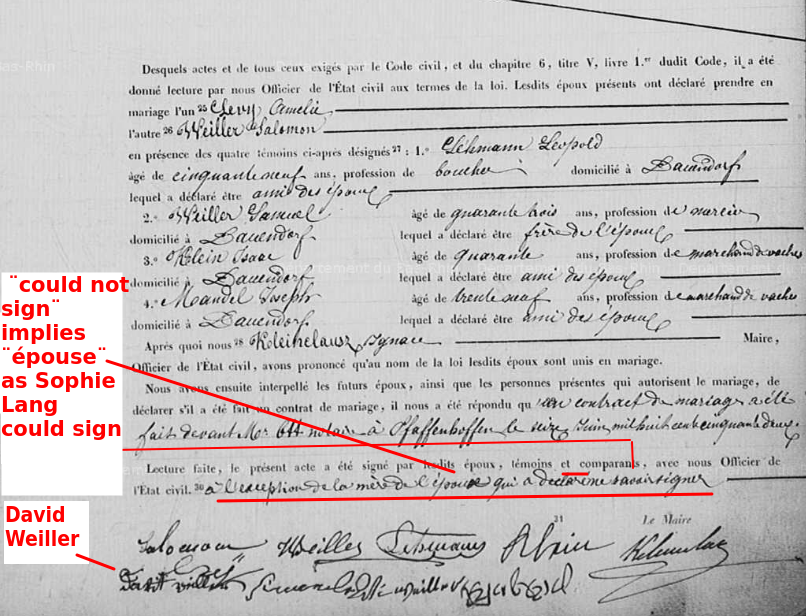 Desquels actes et de tous ceux exigés par le Code civil, et du chapitre 6, titre V, livre 1.er dudit Code, il a été
donné lecture par nous Officier de l'État civil aux termes de la loi. Lesdits époux présents ont déclaré prendre en
mariage l'un 25 Levy Amelie
l'autre 26 Weiller Salomon
en présence des quatre témoins ci-après désignés 27 : 1.° Lehmann Leopold
âgé de cinquante neuf ans, profession de boucher domicilié à Dauendorf
lequel a déclaré être ami des époux
2.° Weiller Samuel âgé de quarante trois ans, profession de
domicilié à Dauendorf lequel a déclaré être frère de l'époux
3.° Klein Isaac âgé de quarante ans, profession de marchand de vaches
domicilié à Dauendorf lequel a déclaré être ami des époux
4.° Mandel Joseph âgé de trente neuf ans, profession de marchand de vaches
domicilié à Dauendorf lequel a déclaré être ami des époux
Après quoi nous 28 Kleinclauss Ignace Maire,
Officier de l'État civil, avons prononcé qu'au nom de la loi lesdits époux sont unis en mariage.
Nous avons ensuite interpellé les futurs époux, ainsi que les personnes présentes qui autorisent le mariage, de
déclarer s'il a été fait un contrat de mariage, il nous a été répondu qu'un contract de mariage a été
fait devant Mer Ott notaire à Pfaffenhoffen le seize Juin mil huit cent cinquante deux
Lecture faite, le présent acte a été signé par lesdits époux, témoins et comparants, avec nous Officier de
l'État civil. 30 à l'exception de la mère de l'épouse qui a déclaré ne savoir signer
31 Le Maire
Salomon Weiller Lehmann
¨could not
sign¨
implies
¨épouse¨
as Sophie
Lang
could sign
David
Weiller